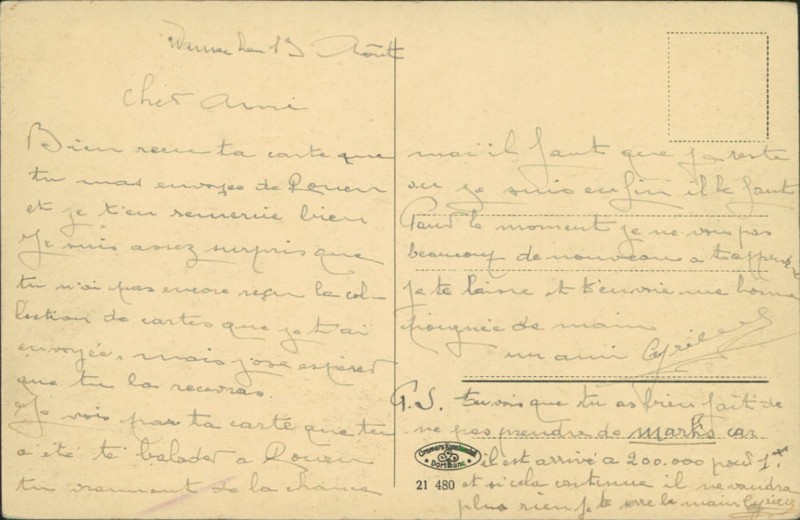 13 Août
Cher Ami
Bien reçu ta carte que
tu mas envoyée de Rouen
et je t'en remercie bien
Je suis assez surpris que
tu n'ai pas encore reçu la col-
lection de cartes que je t'ai
envoyée, mais j'ose espérer
que tu la recevras.
Je vois par ta carte que tu
a été te balader a Rouen
tu vraiment de la chance
moi il faut que je reste
ou je suis enfin il le faut
Pour le moment je ne vois pas
beaucoup de nouveau a t'apprendre
je te laisse et t'envoie une bonne
Poignée de main
un ami Cyrille
P.S. tu vois que tu as bien fait de
ne pas prendre de marks car
il est arrivé a 200.000 pour 1
et si cela continue il ne vaudra
plus rien je te serre la main Cyrille
Cramers Kunstanstalt
Dortmund
21 480